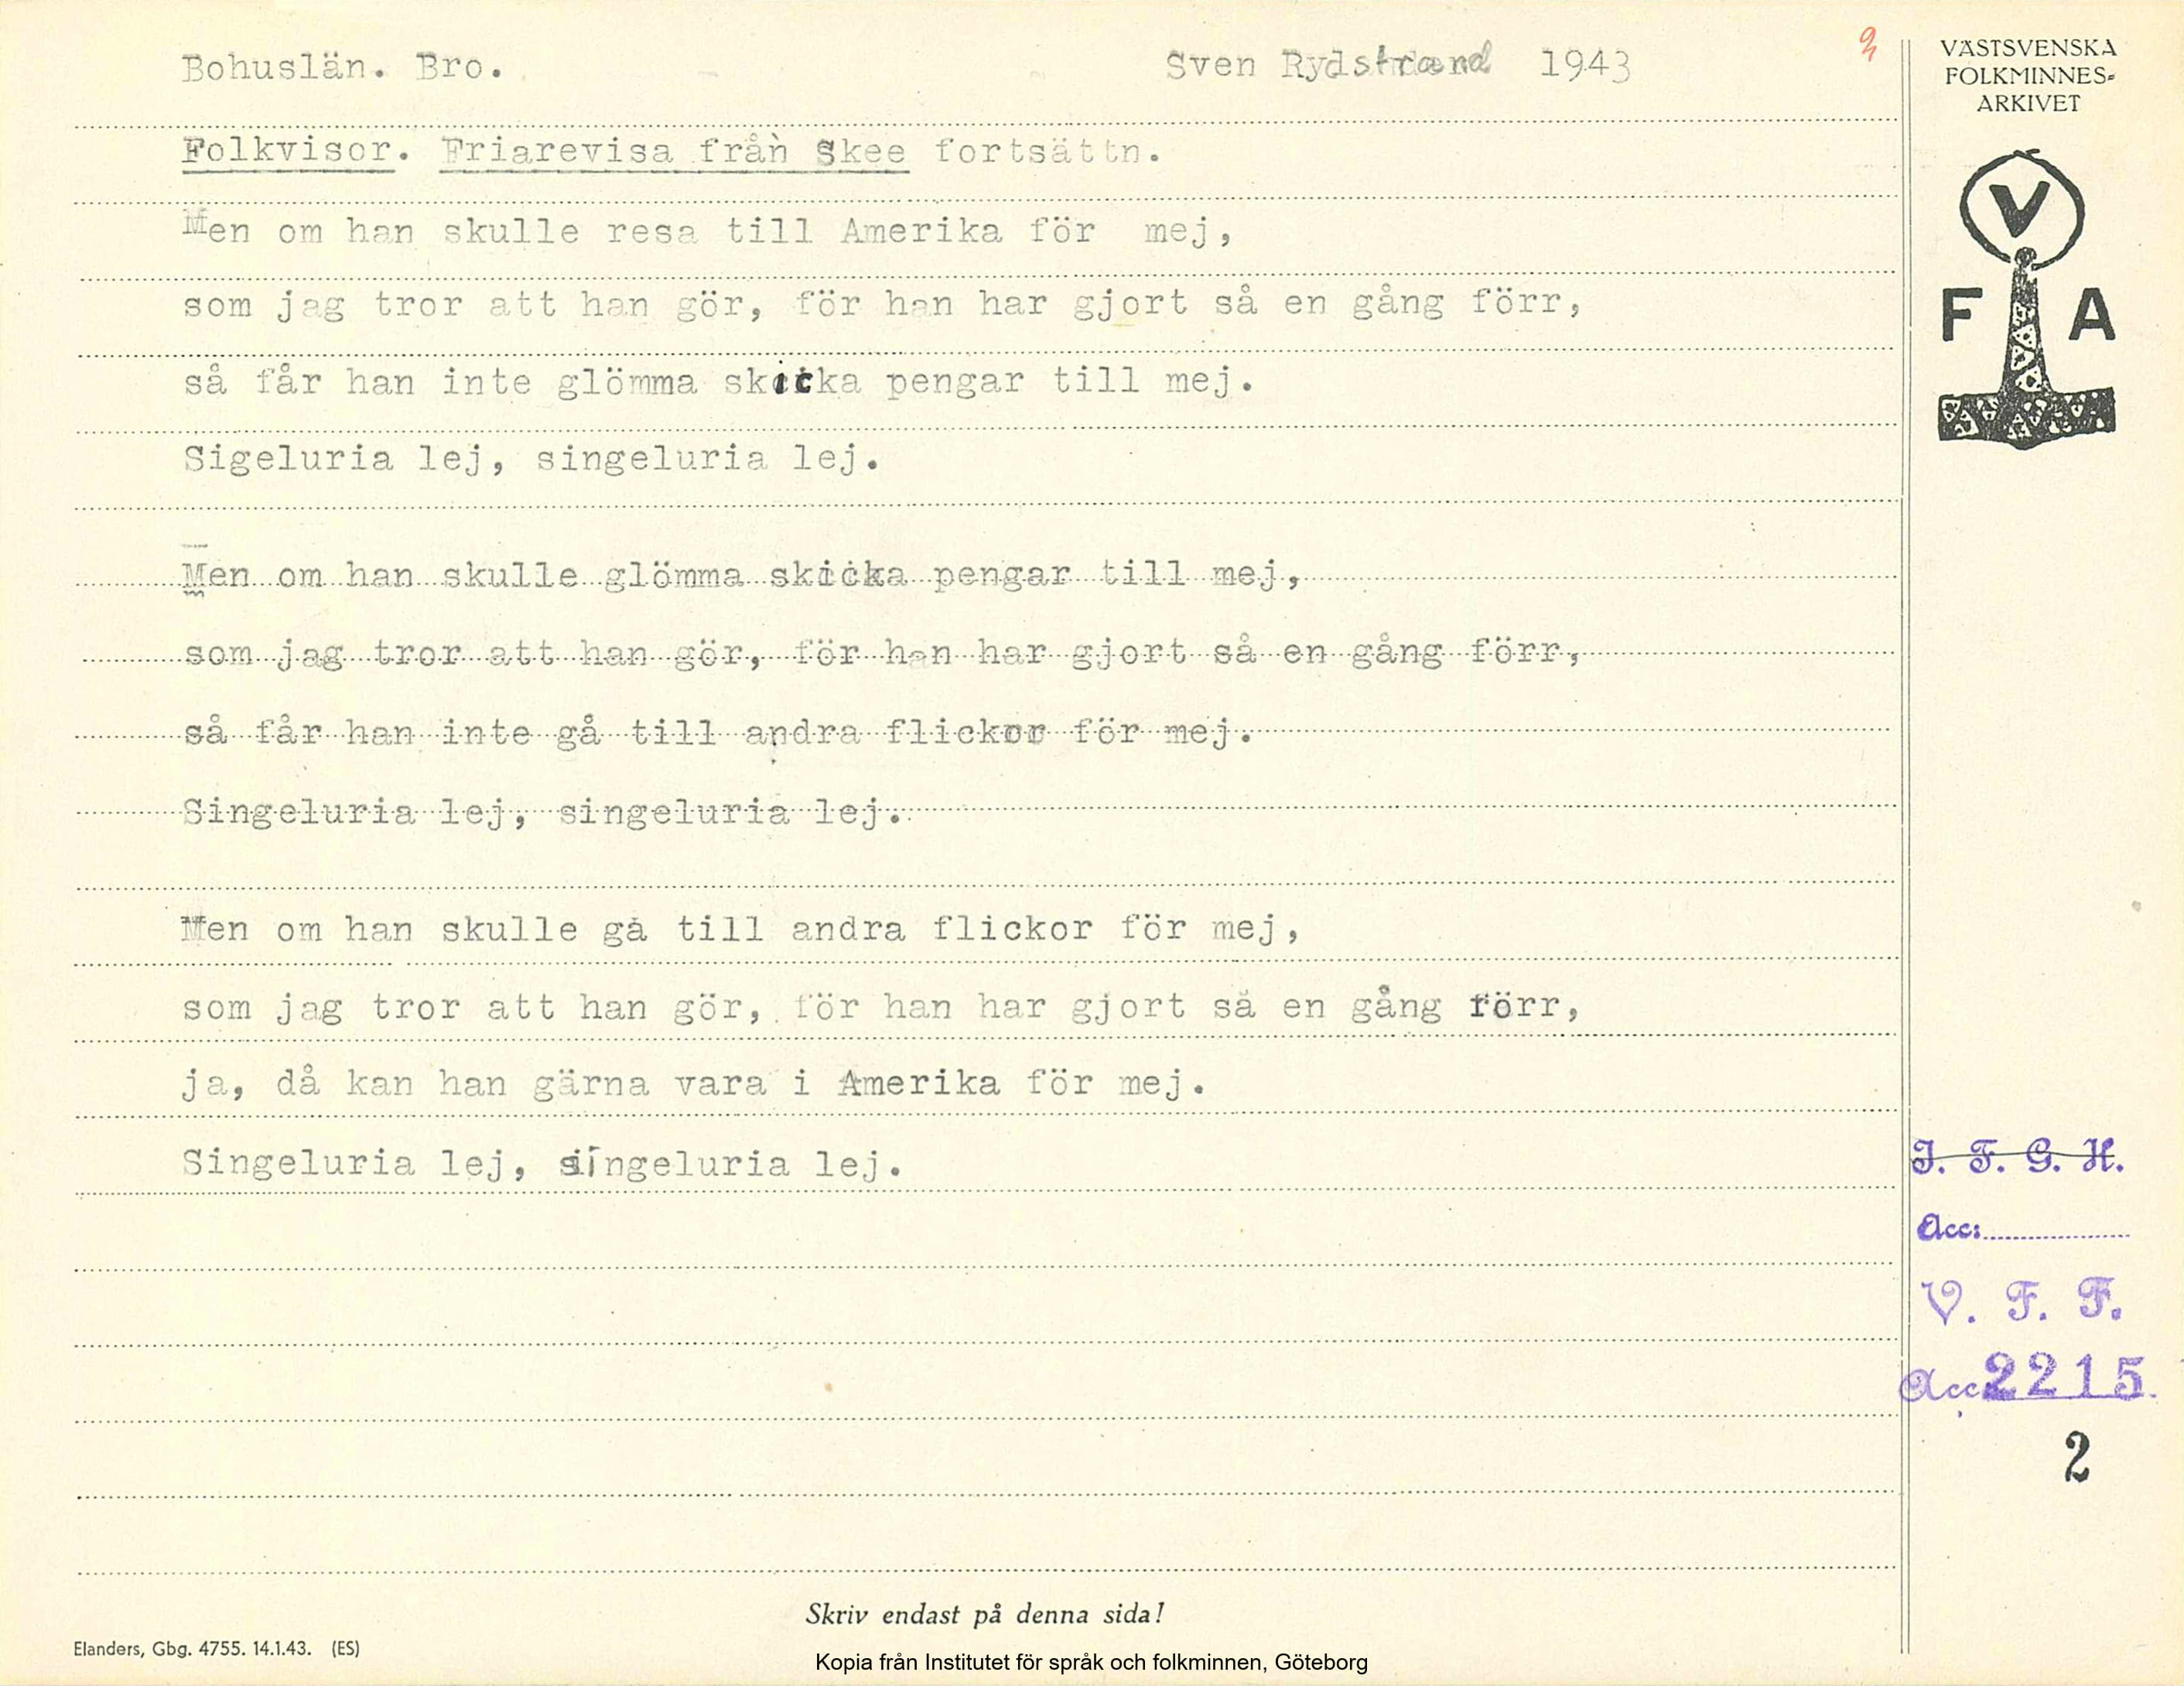 Bohuslän. Bro.
Sven Rydstrand 1943
Folkvisor. Friarevisa från Skee fortsättn.
Men om han skulle resa till Amerika för mej,
som jag tror att han gör, för han har gjort så en gång förr,
så får han inte glömma skicka pengar till mej.
Sigeluria lej, singeluria lej.
Men om han skulle glömma skicka pengar till mej,
som jag tror att han gör, för han har gjort så en gång förr,
så får han inte gå till andra flickor för mej.
Singeluria lej, singeluria lej.
Men om han skulle gå till andra flickor för mej,
som jag tror att han gör, för han har gjort så en gång förr,
ja, då kan han gärna vara i Amerika för mej.
Singeluria lej, singeluria lej.
Skriv endast på denna sida!
Elanders, Gbg. 4755. 14.1.43. (ES)
Kopia från Institutet för språk och folkminnen, Göteborg
VÄSTSVENSKA
FOLKMINNES-
ARKIVET
V
F A
I. F. G. H.
Acc:
V. F. F.
Acc 2215
2